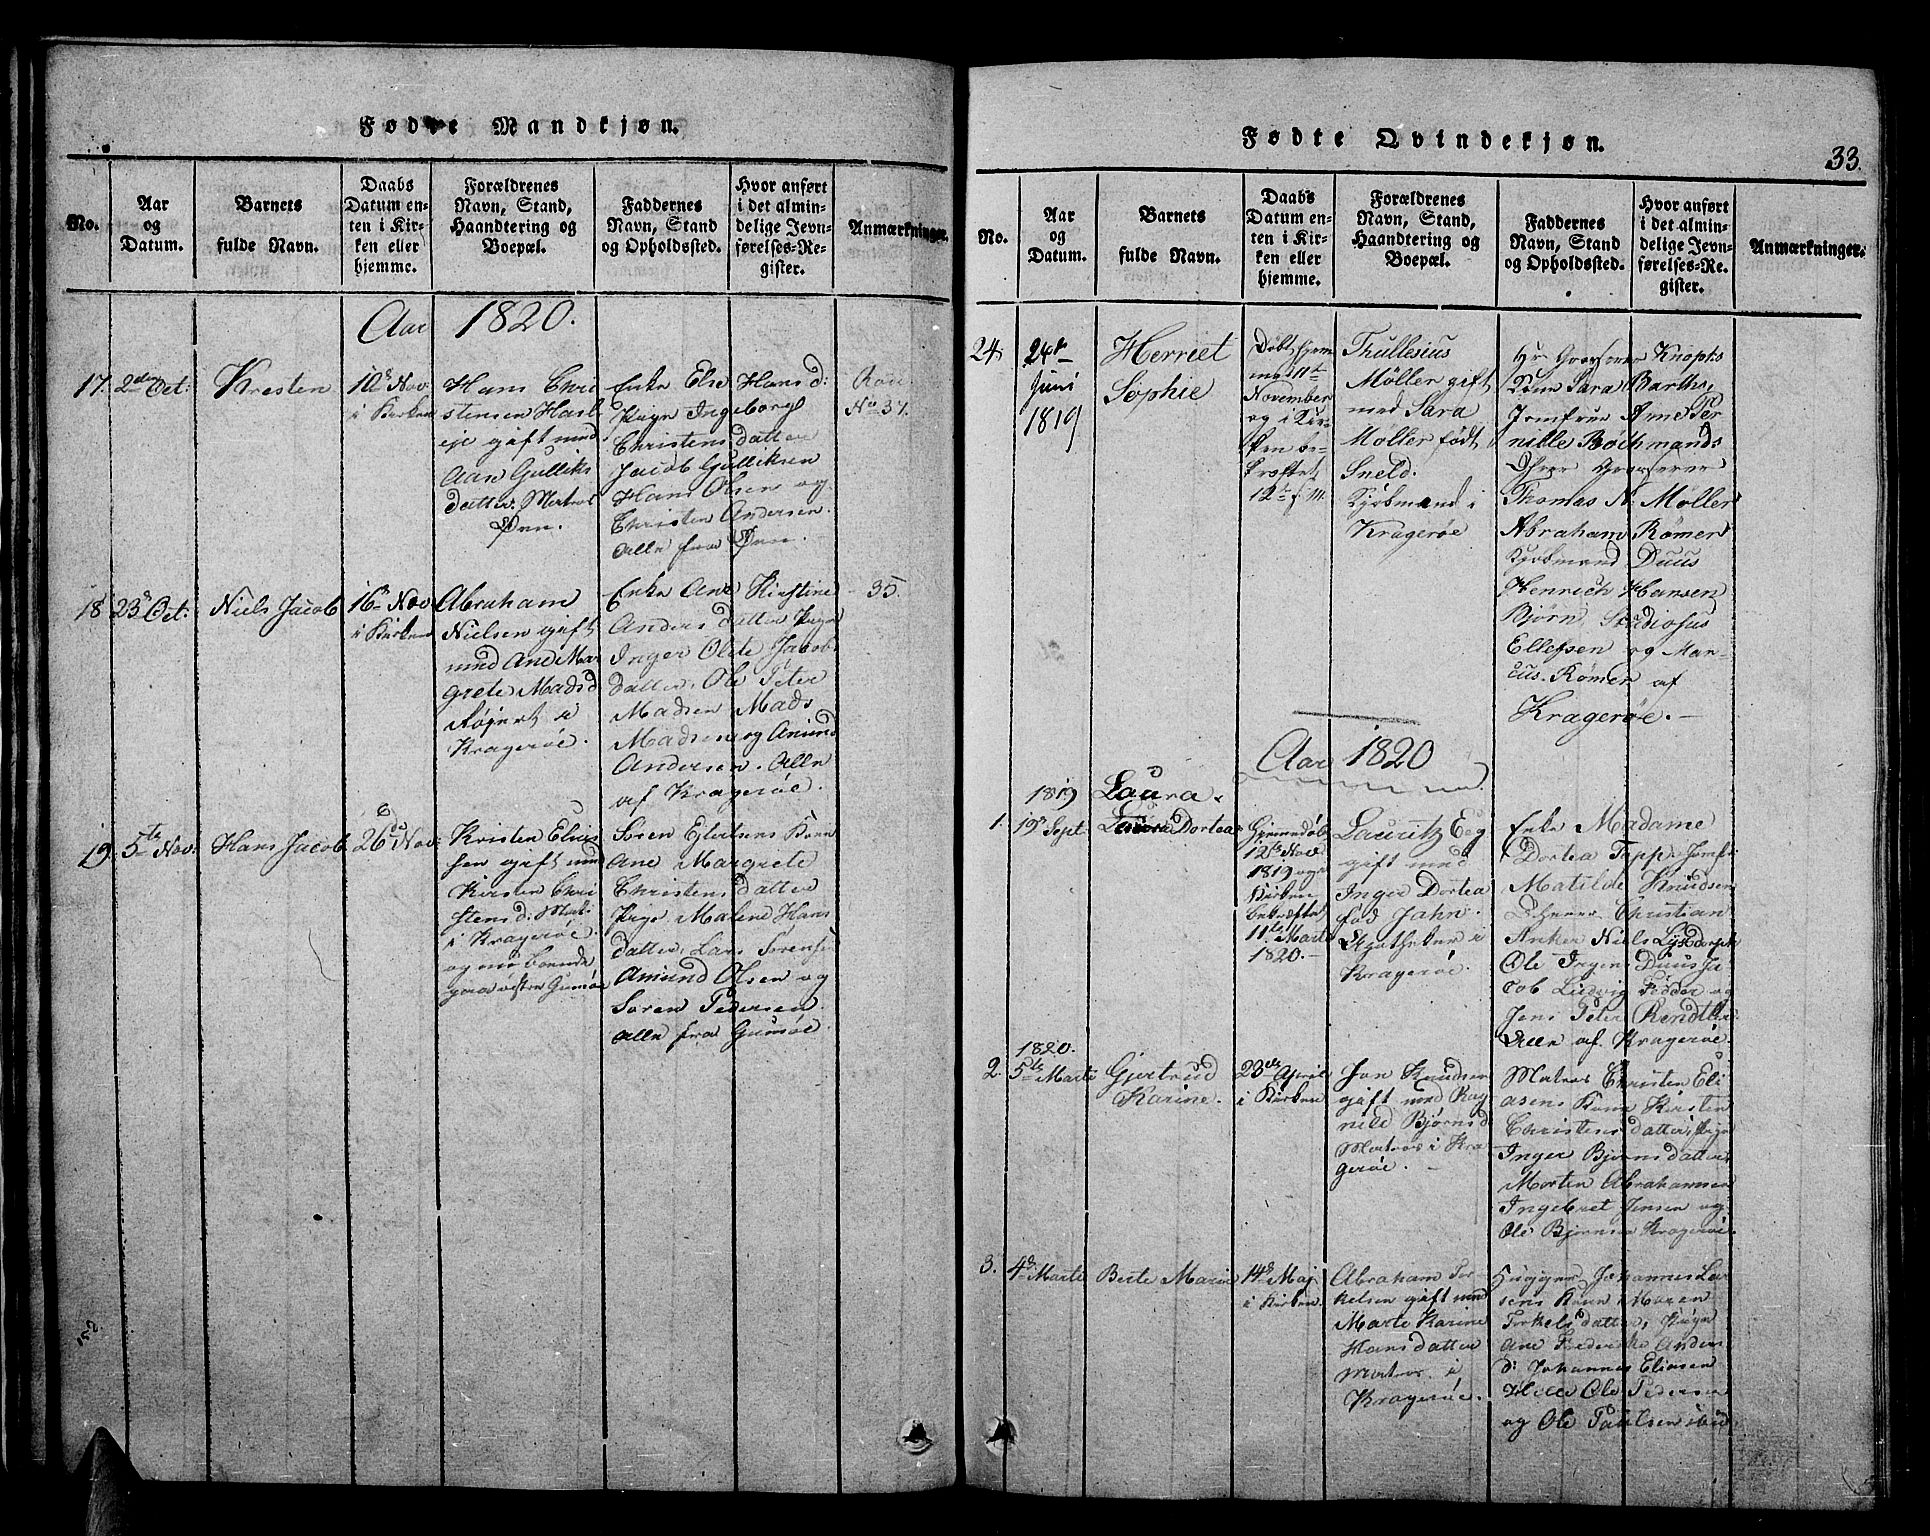 Fødte Mandkjøn.
No.
Aar
og
Datum.
Barnets
fulde Navn.
Daabs
Datum en-
ten i Kir-
ken eller
hjemme.
Forældrenes
Navn, Stand,
Haandtering og
Boepæl.
Faddernes
Navn, Stand
og Opholdssted.
Hvor anført
i det almin-
delige Jevn-
førelses-Re-
gister.
Anmærkninger.
Aar 1820.
17.
2den Oct:
Kresten
10de Nov.
i Kirken
Hans Chri
stensen Hasl
eje gift med
Aase Gulliks
datter. Matros
Øen.
Enke Else Hans d:
Pige Ingeborg
Christens datter
Jacob Gulliksen
Hans Olsen og
Christen Andersen.
Alle fra Øen.
No 37.
18
23de Oct:
Niels Jacob
16de Nov
i Kirken
Abraham
Nielsen gift
med Ane Mar
grete Mads d
Kragerøe.
Enke Ane Kirstine
Anders datter Pige
Inger Olete Jacobs
datter. Ole Peter
Madsen Mads
Madsen og Amund
Andersen. Alle
af Kragerøe.
35.
19.
5te Nov:
Hans Jacob
26de Nov:
Kristen Elias
sen gift med
Kirsten Chri
stens d: Mat:
i Kragerøe.
og nu boende
paa vestre Gumøe
Søren Egertsens Kone
Ane Margrete
Christens datter
Pige. Malene Hans
datter Lars Sørens:
Amund Olsen og
Søren Pedersen.
Alle fra Gumøe.
152
Fødte Qvindekjøn.
33.
No.
Aar
og
Datum.
Barnets
fulde Navn.
Daabs
Datum en-
ten i Kir-
ken eller
hjemme.
Forældrenes
Navn, Stand,
Haandtering og
Boepæl.
Faddernes
Navn, Stand
og Opholdssted.
Hvor anført
i det almin-
delige Jevn-
førelses-Re-
gister.
Anmærkninger.
24.
24de
Juni
1819
Herriet
Sophie
Døbt hjem
me 11te
November
og i Kir-
ken be-
kræftet
12te
Thullesius
Møller gift
med Sara
Møller født
Sneld.
Kjøbmand i
Kragerøe
Hr Grosserer Knophs
Kone Sara Barths,
Jomfrue Anne Per
nille Bothmands
Hrer Grosserer
Thomas N. Møller
Abraham Rømer
Kjøbmand Duus
Henrich Hansen
Bjørn, Studiosus
Ellefsen og Mar-
cus. Rømer af
Kragerøe.
Aar 1820
1.
1819
19de Sept
Laura
Dortea
Hjemmedøbt
12te Nov
1819 og i
Kirken
bekræftet
11te Marts
1820.
Lauritz Eeg
gift med
Inger Dortea
fød Jahn.
Apotheker i
Kragerøe.
Enke Madame
Dortea Tapp. Jomfr
Matilde Knudsen
D.herrer Christian
Anker Niels Lysdorph
Ole Irgen Duus Ja
cob Ludvig Fedder og
Jens Peter Rendtler
Alle af Kragerøe.
1820.
2.
5te Marts
Gjertrud
Karine.
23de April
i Kirken
Jon Knudsen
gift med Rag
nild Bjørns d
Matros i Kra
gerøe.
Matros Christen Eli
asens Kone Kirsten
Christens datter, Pige
Inger Bjørns datter
Morten Abrahamsen
Ingebret Jensen og
Ole Bjørnsen Kragerøe
3.
4de Marts
Berte Marie
14de Maj
i Kirken.
Abraham Tor-
kelsen gift med
Marte Karine
Hans datter
Matros i
Kragerøe.
Johannes Lar
sens Kone Maren
Torkels datter, Pigen
Ane Frederike Anders
d: Johannes Eliasen
Ole Pedersen
og Ole Paulsen ibid.